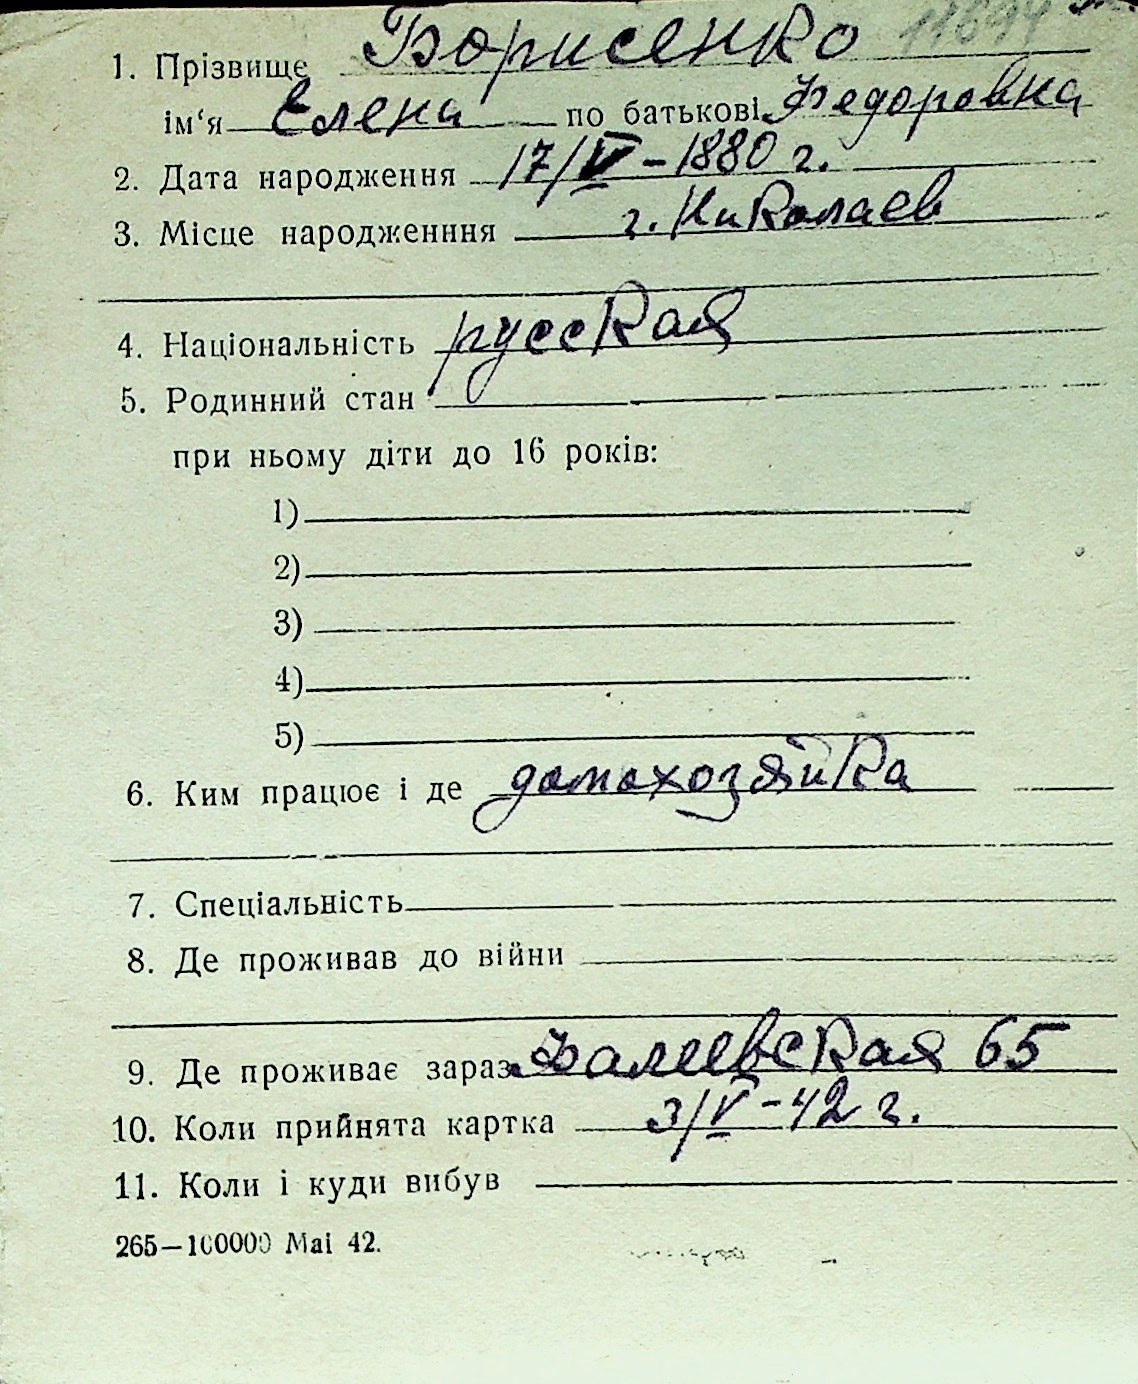 1. Прізвище Борисенко
ім‘я Елена по батькові Федоровна
2. Дата народження 17/V – 1880 г.
3. Місце народженння г. Николаев
4. Національність русская
5. Родинний стан
при ньому діти до 16 років:
1)
2)
3)
4)
5)
6. Ким працює і де домохозяйка
7. Спеціальність
8. Де проживав до війни
9. Де проживає зараз Фалеевская 65
10. Коли прийнята картка 3/V – 42 г.
11. Коли і куди вибув
265—100000 Mai 42.